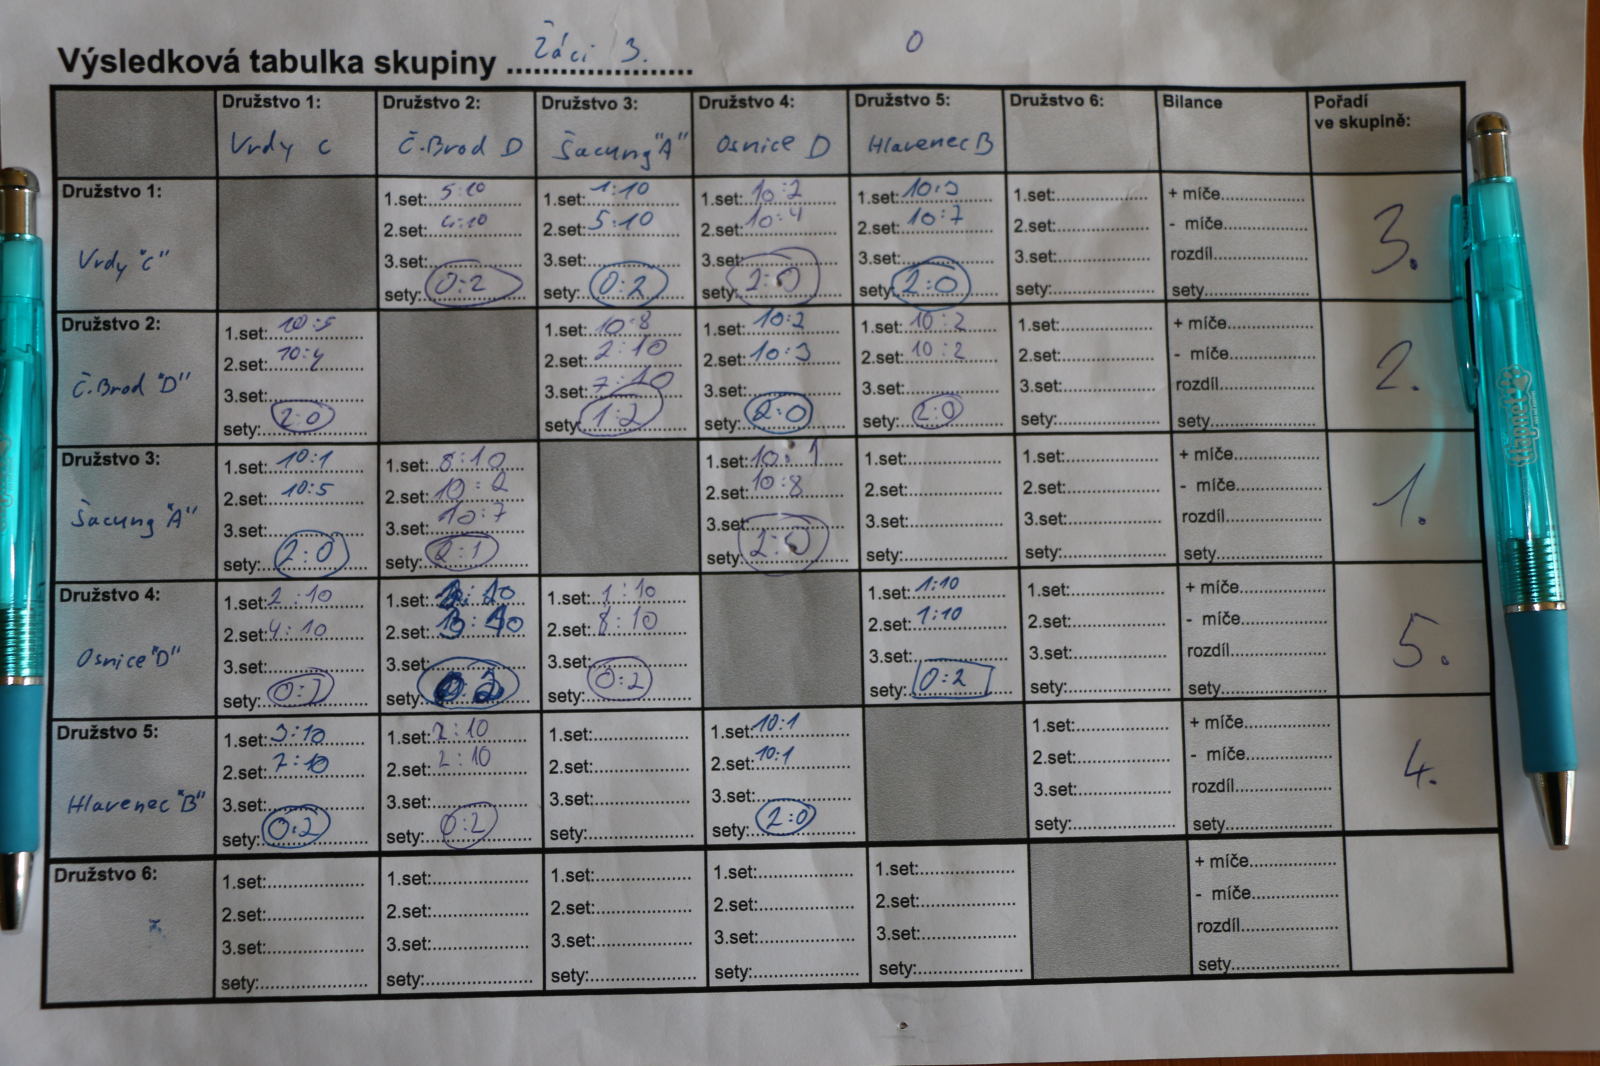 Výsledková tabulka skupiny Žáci 3. 0
Družstvo 1: Družstvo 2: Družstvo 3: Družstvo 4: Družstvo 5: Družstvo 6: Bilance Pořadí ve skupině:
Vrdy C Č.Brod D Šacung "A" Osnice D Hlavenec B
Družstvo 1:
Vrdy "C"
1.set: 5:10 1.set: 1:10 1.set: 10:2 1.set: 10:3 1.set: + míče
2.set: 4:10 2.set: 5:10 2.set: 10:4 2.set: 10:7 2.set: - míče
3.set: 3.set: 3.set: 3.set: 3.set: rozdíl
sety: 0:2 sety: 0:2 sety: 2:0 sety: 2:0 sety: sety
3.
Družstvo 2:
Č.Brod "D"
1.set: 10:5 1.set: 10:8 1.set: 10:2 1.set: 10:2 1.set: + míče
2.set: 10:4 2.set: 2:10 2.set: 10:3 2.set: 10:2 2.set: - míče
3.set: 3.set: 7:10 3.set: 3.set: 3.set: rozdíl
sety: 2:0 sety: 1:2 sety: 2:0 sety: 2:0 sety: sety
2.
Družstvo 3:
Šacung "A"
1.set: 10:1 1.set: 8:10 1.set: 10:1 1.set: 1.set: + míče
2.set: 10:5 2.set: 10:2 2.set: 10:8 2.set: 2.set: - míče
3.set: 3.set: 10:7 3.set: 3.set: 3.set: rozdíl
sety: 2:0 sety: 2:1 sety: 2:0 sety: sety: sety
1.
Družstvo 4:
Osnice "D"
1.set: 2:10 1.set: 2:10 1.set: 1:10 1.set: 1:10 1.set: + míče
2.set: 4:10 2.set: 3:10 2.set: 8:10 2.set: 1:10 2.set: - míče
3.set: 3.set: 3.set: 3.set: 3.set: rozdíl
sety: 0:2 sety: 0:2 sety: 0:2 sety: 0:2 sety: sety
5.
Družstvo 5:
Hlavenec "B"
1.set: 3:10 1.set: 2:10 1.set: 1.set: 10:1 1.set: + míče
2.set: 7:10 2.set: 2:10 2.set: 2.set: 10:1 2.set: - míče
3.set: 3.set: 3.set: 3.set: 3.set: rozdíl
sety: 0:2 sety: 0:2 sety: sety: 2:0 sety: sety
4.
Družstvo 6:
1.set: 1.set: 1.set: 1.set: 1.set: + míče
2.set: 2.set: 2.set: 2.set: 2.set: - míče
3.set: 3.set: 3.set: 3.set: 3.set: rozdíl
sety: sety: sety: sety: sety: sety